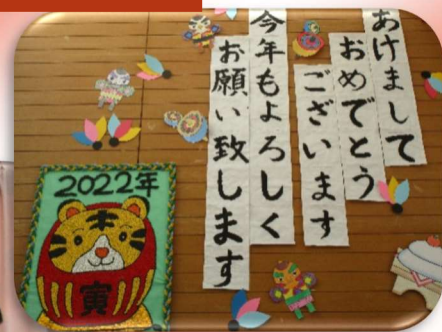 あけまして
おめでとう
ございます
今年もよろしく
お願い致します
2022年
寅